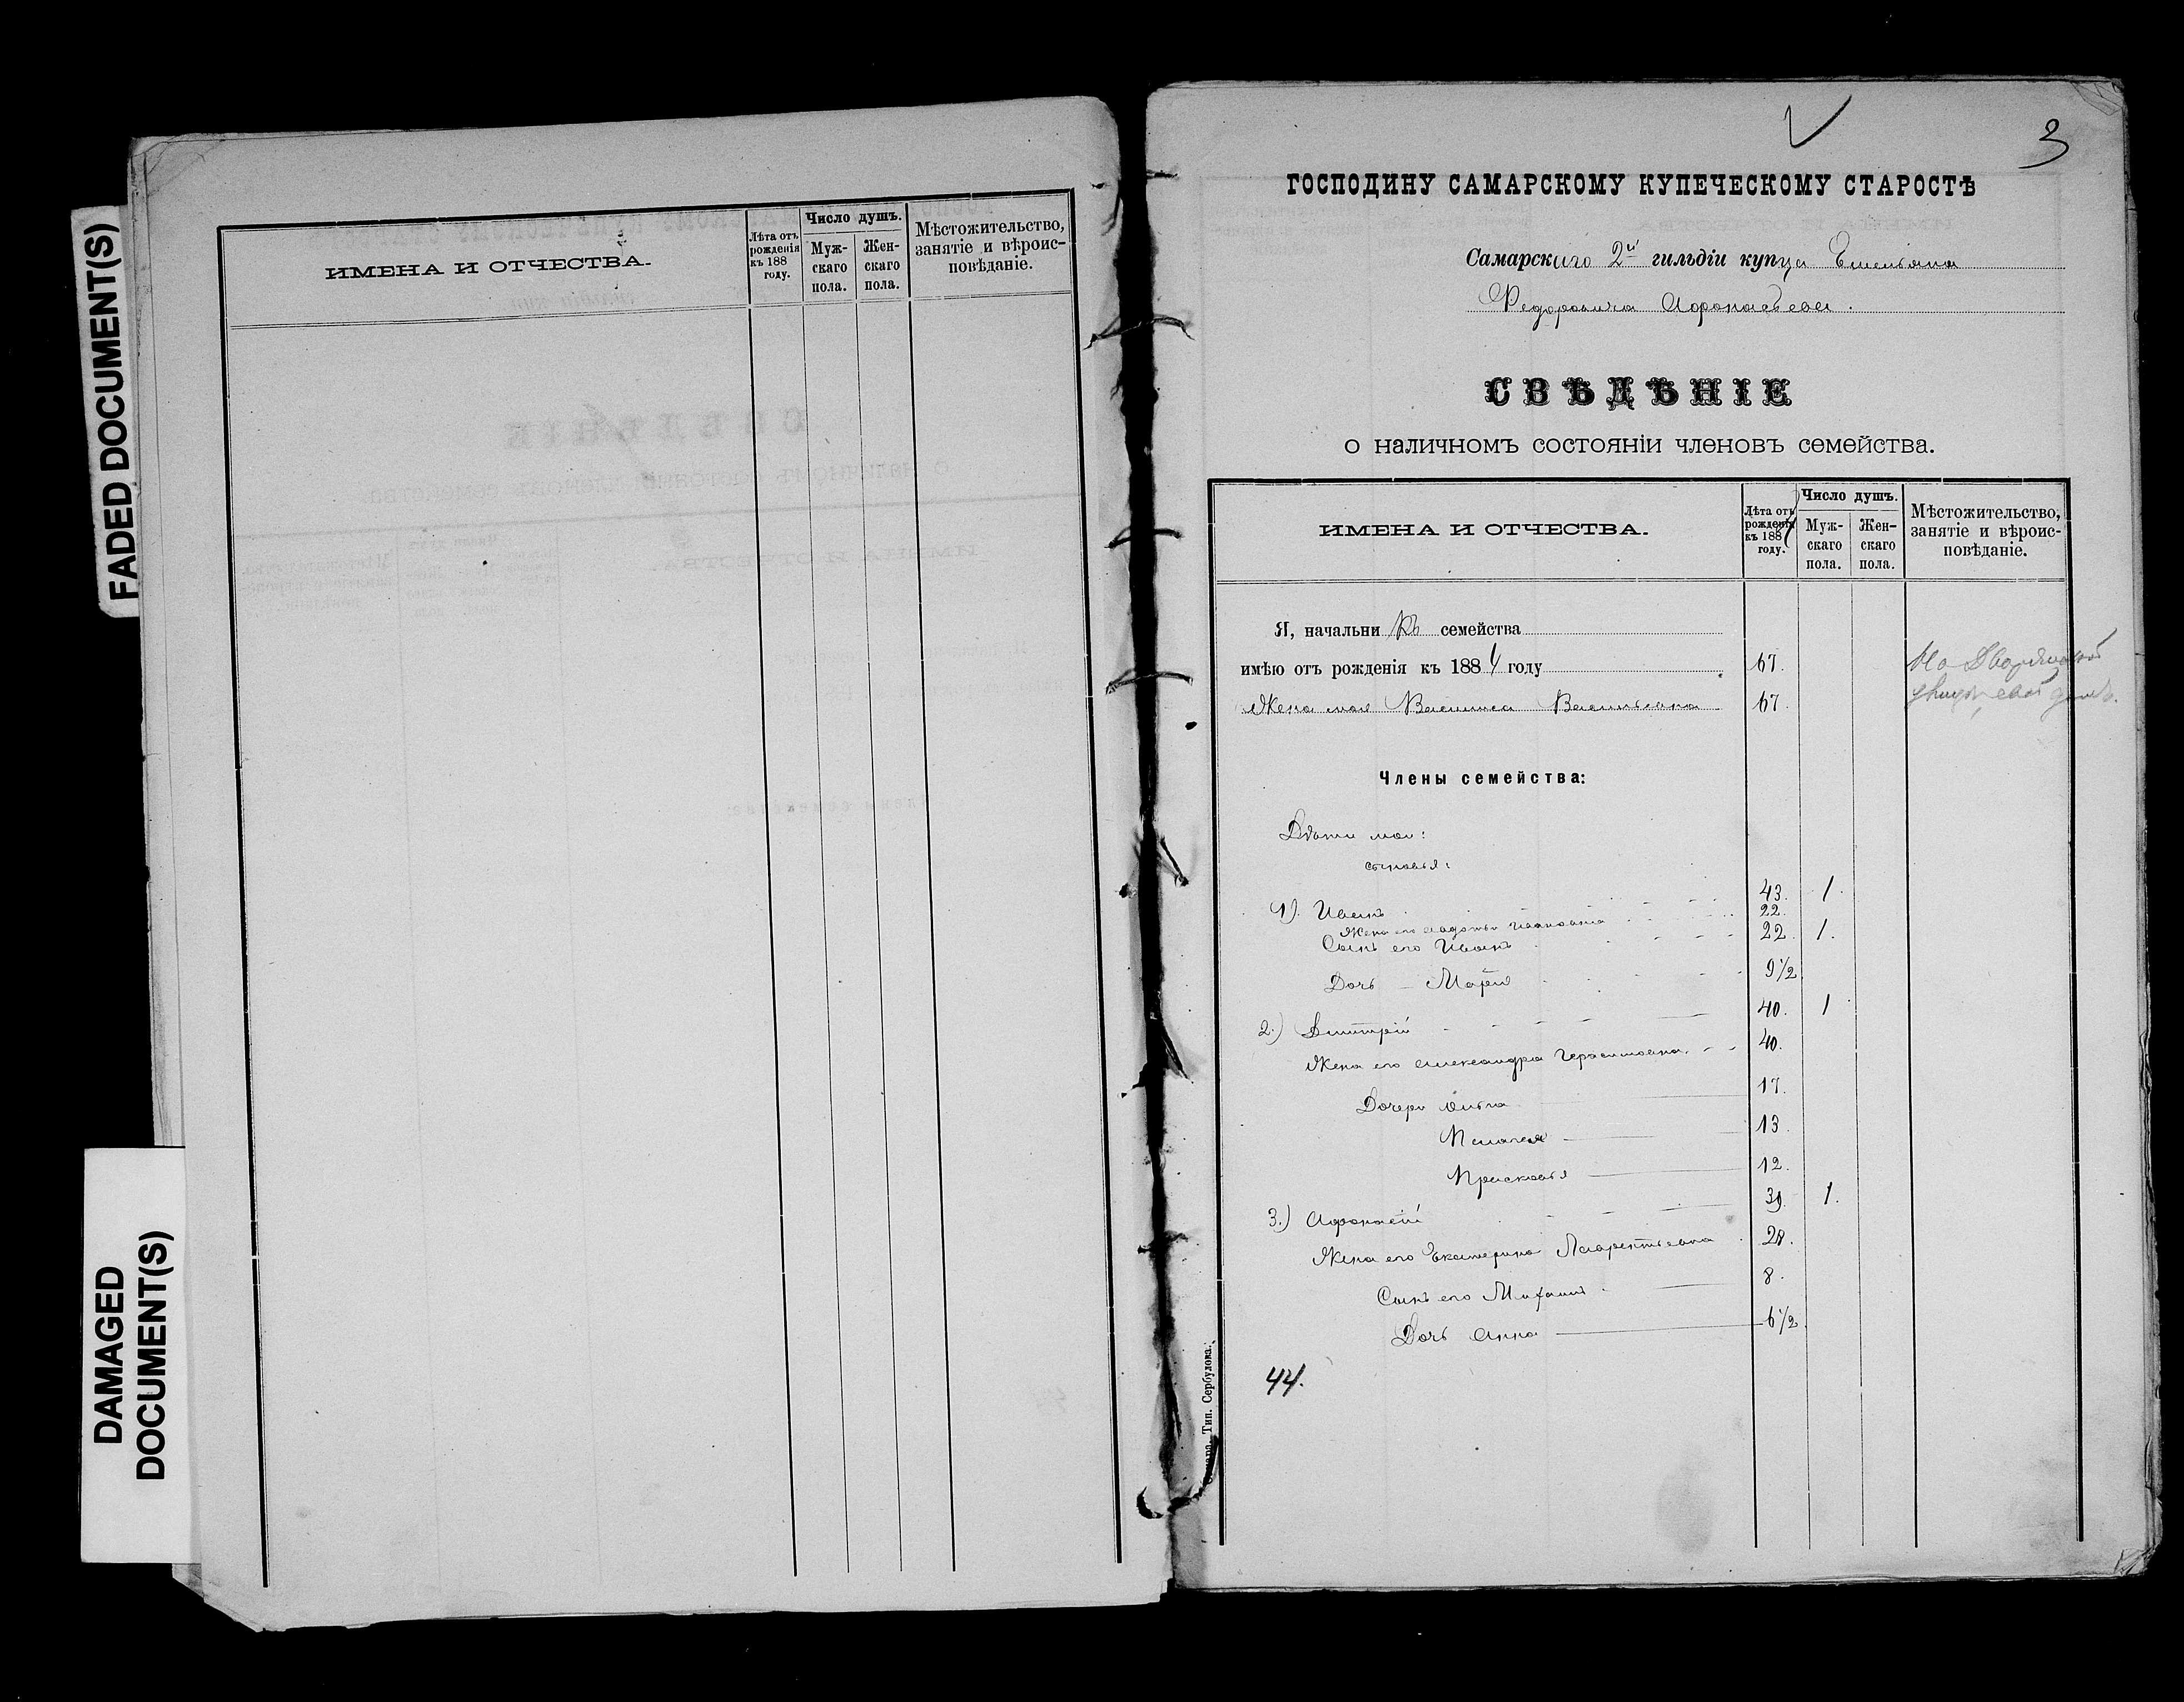 FADED DOCUMENT(S)
DAMAGED
DOCUMENT(S)
ИМЕНА И ОТЧЕСТВА.
Лѣта отъ рожденія къ 188 году.
Число душъ.
Мужскаго пола.
Женскаго пола.
Мѣстожительство, занятіе и вѣроисповѣданіе.
3
ГОСПОДИНУ САМАРСКОМУ КУПЕЧЕСКОМУ СТАРОСТѢ
Самарскаго 2й гильдіи купца Емельяна
Федоровича Афонасьева.
СВѢДѢНІЕ
о наличномъ состояніи членовъ семейства.
ИМЕНА И ОТЧЕСТВА.
Лѣта отъ рожденія къ 1884 году.
Число душъ.
Мужскаго пола.
Женскаго пола.
Мѣстожительство, занятіе и вѣроисповѣданіе.
Я, начальникъ семейства
имѣю отъ рожденія къ 1884 году 67. На Дворянской
Жена моя Васильевна 67.
Члены семейства:
Дѣти мои:
сыновья:
1). Иванъ 43. 1.
Жена его Ивановна 22.
Сынъ его Иванъ 22. 1.
Дочь Марія 9 1/2
2.) Дмитрій 40. 1
Жена его Александра Герасимовна 40.
Дочери 17.
Пелагея 13.
Прасковья 12.
3.) Афонасій 39. 1.
Жена его Екатерина Лаврентьевна 28.
Сынъ его Михаилъ 8.
Дочь Анна 6 1/2
44.
Самара. Тип. Сербулова.